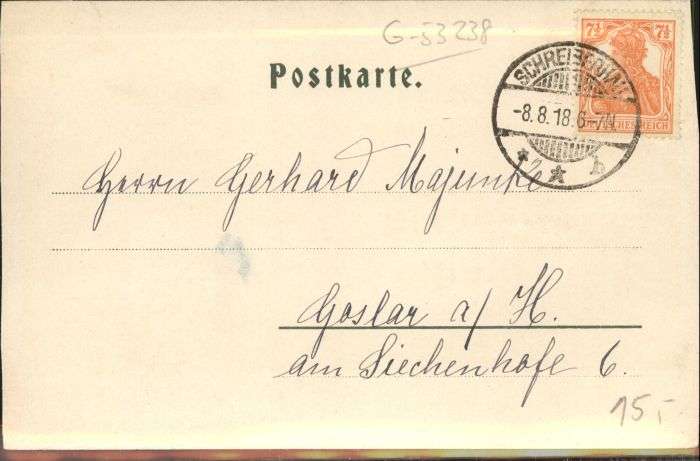 G-53238
7½ 7½
Postkarte.
SCHREIBERHAU
-8.8.18.6-7N.
* 2 * b
Herrn Gerhard Majunke
Goslar a/H.
am Siechenhofe 6.
15,-